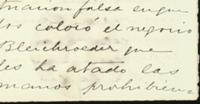 tuacion falsa en que
los colocó el negocio
Bleichroeder que
les ha atado las
manos prohibien